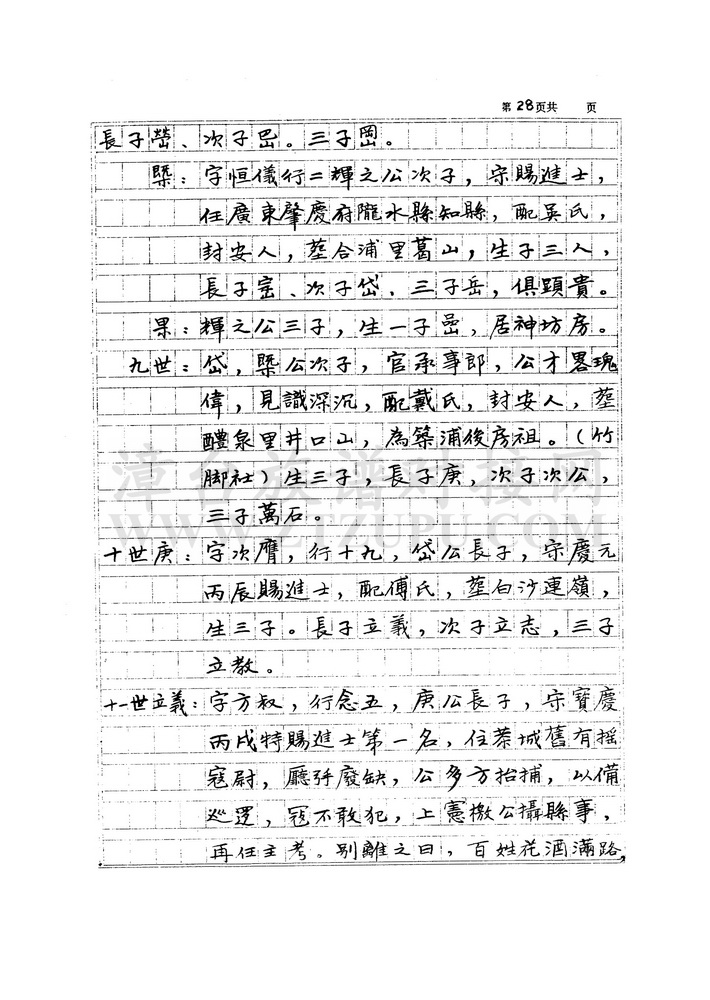 第28页共 页
長子塋、次子巴。三子岡。
槩：字恒儀行二輝之公次子，宋賜進士，
任廣東肇慶府隴水縣知縣，配吳氏，
封安人，塟合浦里葛山，生子三人，
長子峃、次子岱、三子岳，俱顕貴。
果：輝之公三子，生一子嵒，居神坊房。
九世：岱，槩公次子，官承事郎，公才畧瑰
偉，見識深沉，配戴氏，封安人，塟
醴泉里井口山，為築浦後房祖。（竹
脚社）生三子，長子庚，次子次公，
三子萬石。
十世庚：字次膺，行十九，岱公長子，宋慶元
丙辰賜進士，配傅氏，塟白沙連嶺，
生三子。長子立義，次子立志，三子
立教。
十一世立義：字方叔，行念五，庚公長子，宋寶慶
丙戌特賜進士第一名，住恭城舊有摇
寇尉，廳弙廢缺，公多方招捕，以備
巡逻，寇不敢犯，上憲檄公攝縣事，
再任主考。别離之日，百姓花酒滿路，
漳台族谱对接网
WWW.ZTZUPU.COM